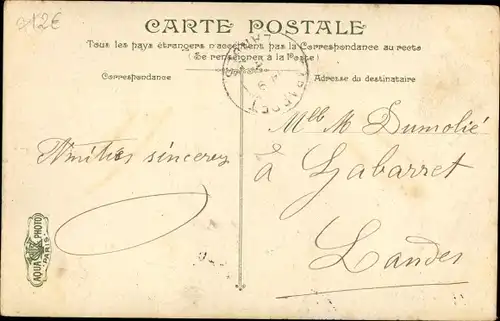 12€
CARTE POSTALE
Tous les pays étrangers n'acceptent pas la Correspondance au recto
(Se renseigner à la Poste)
Correspondance
Adresse du destinataire
Mlle M Dumolié
Amitiés sincères
à Gabarret
Landes
AQUA PHOTO
PARIS